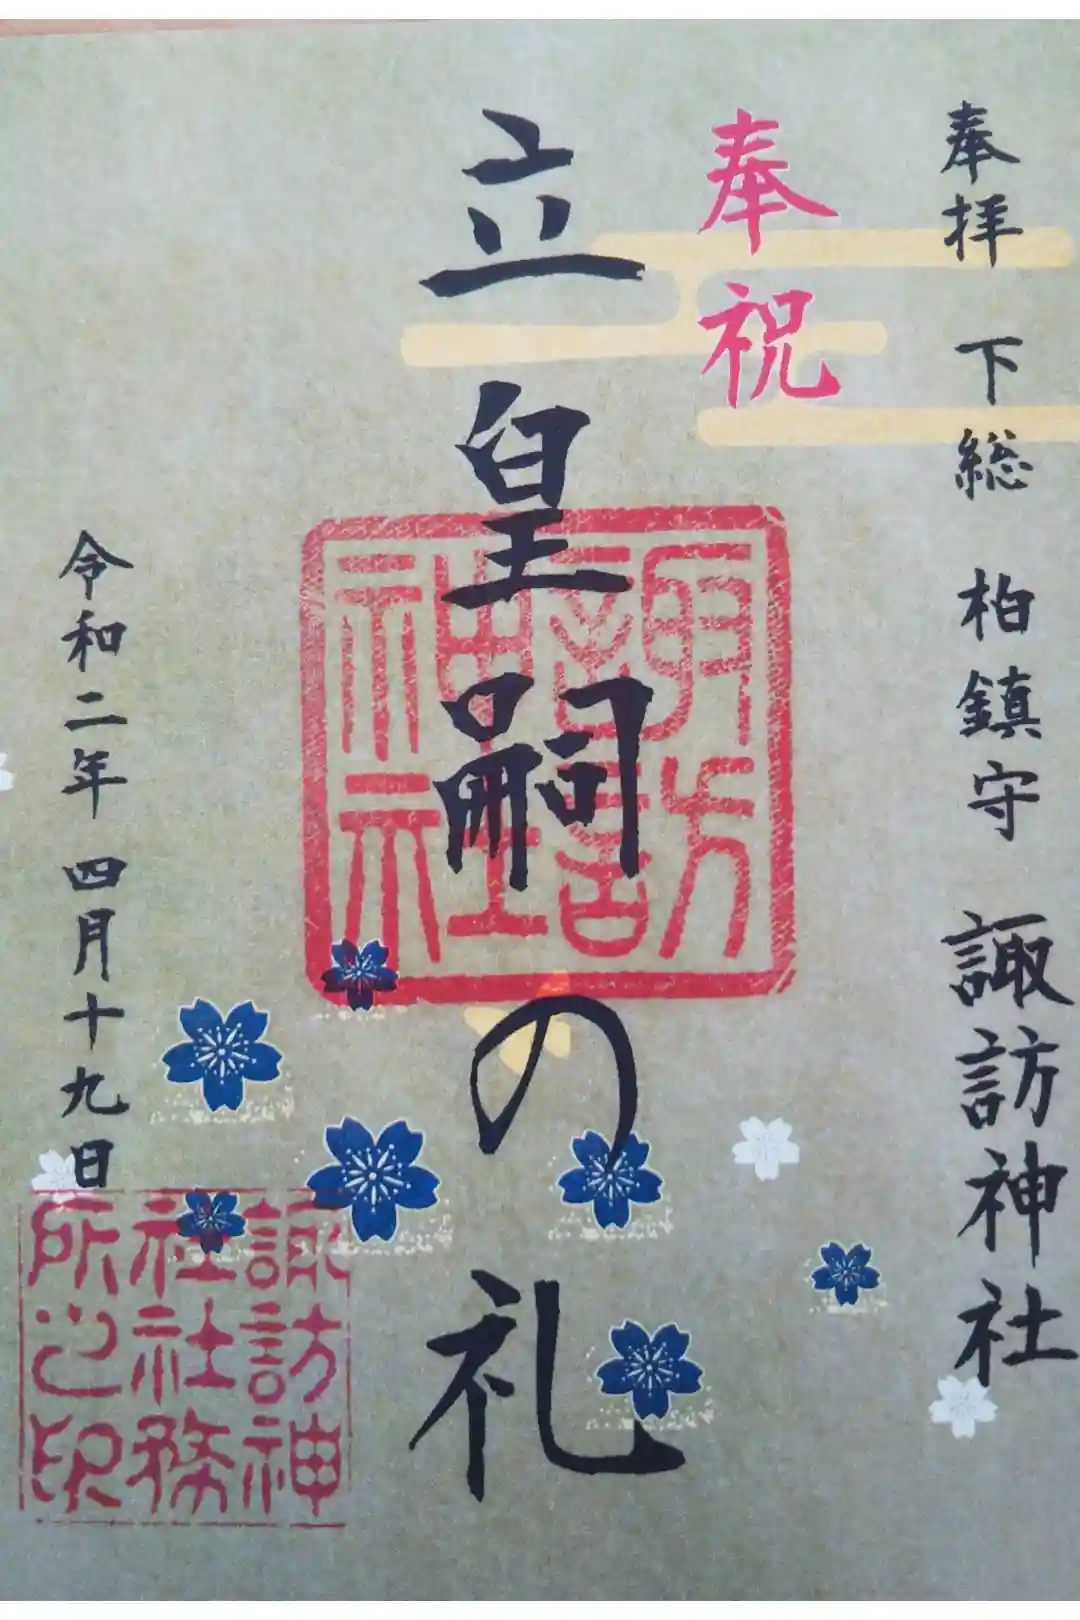 奉拝 下総 柏鎮守 諏訪神社
奉祝
立皇嗣の礼
諏訪
神社
令和二年 四月十九日
諏訪神
社社務
所之印